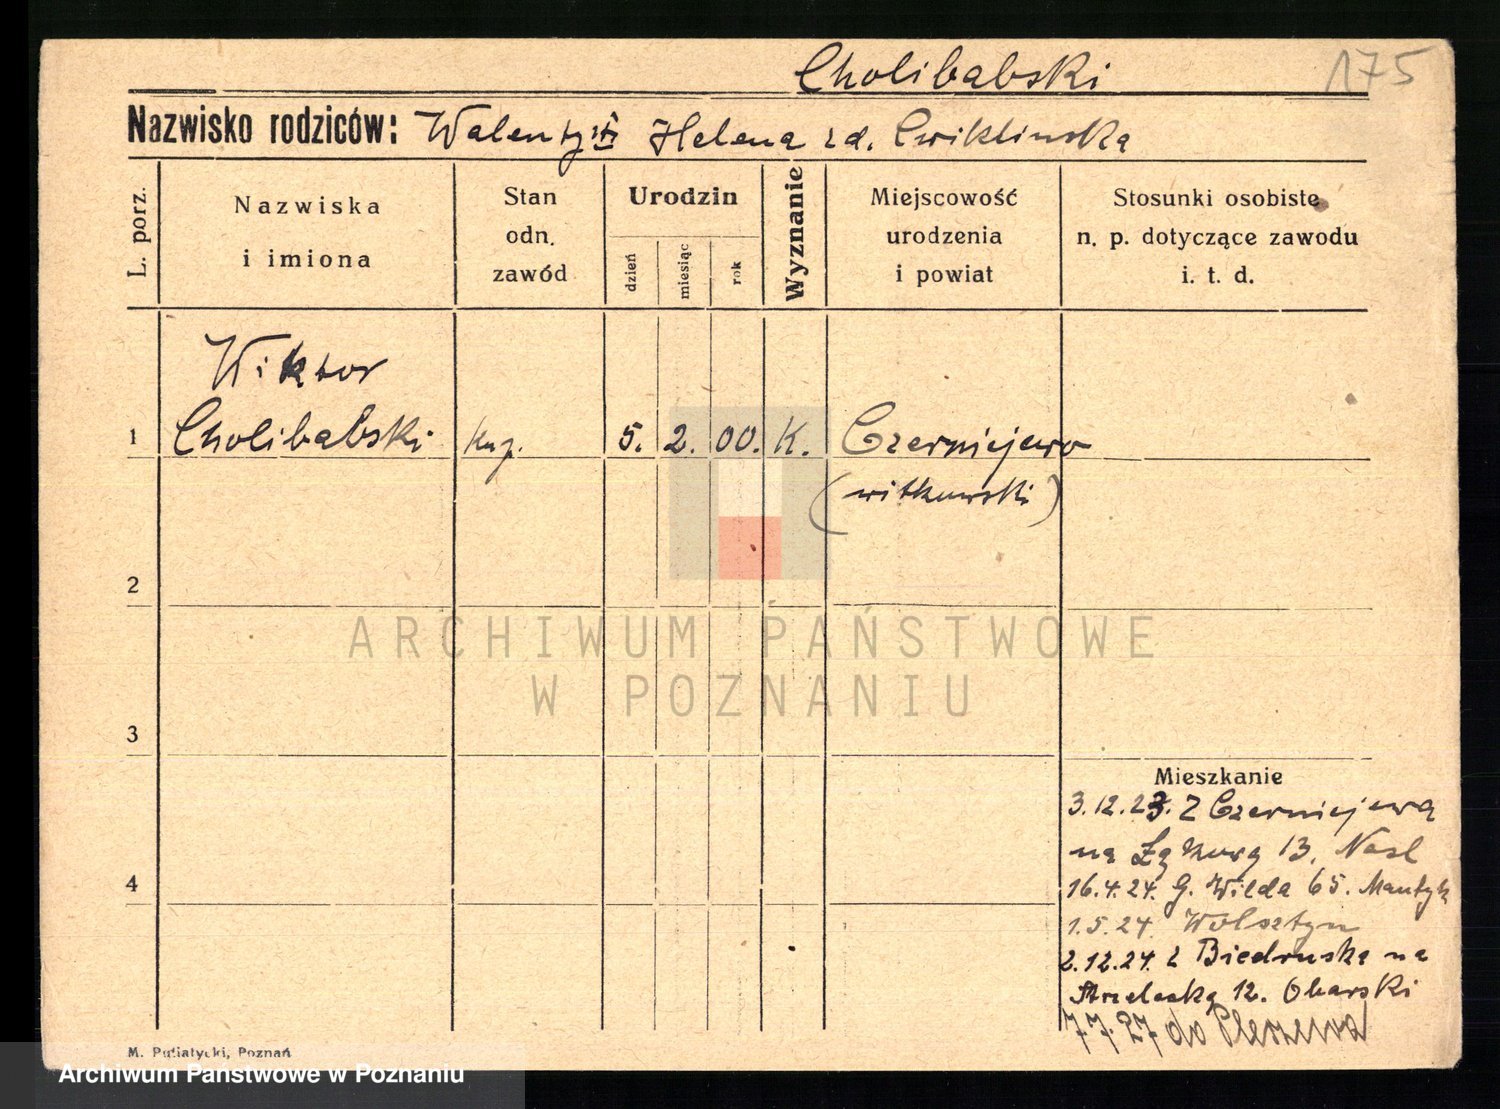 Cholibabski 175
Nazwisko rodziców: Walenty i Helena zd. Cwiklinska
L. porz.
Nazwiska
i imiona
Stan
odn.
zawód
Urodzin
dzień
miesiąc
rok
Wyznanie
Miejscowość
urodzenia
i powiat
Stosunki osobiste
n. p. dotyczące zawodu
i. t. d.
Wiktor
1 Cholibabski kup. 5. 2. 00. K. Czerniejewo
(witkowski)
2
ARCHIWUM PAŃSTWOWE
W POZNANIU
3
Mieszkanie
3.12.23. Z Czerniejewa
na Łąkową 13. Nasl
4
16.4.24. G. Wilda 65. Mantyk
1.5.24 Wolsztyn
2.12.24. z Biedruska na
Strzelecką 12. Obarski
7 7. 27 do Pleszewa
M. Putiatycki, Poznań
Archiwum Państwowe w Poznaniu